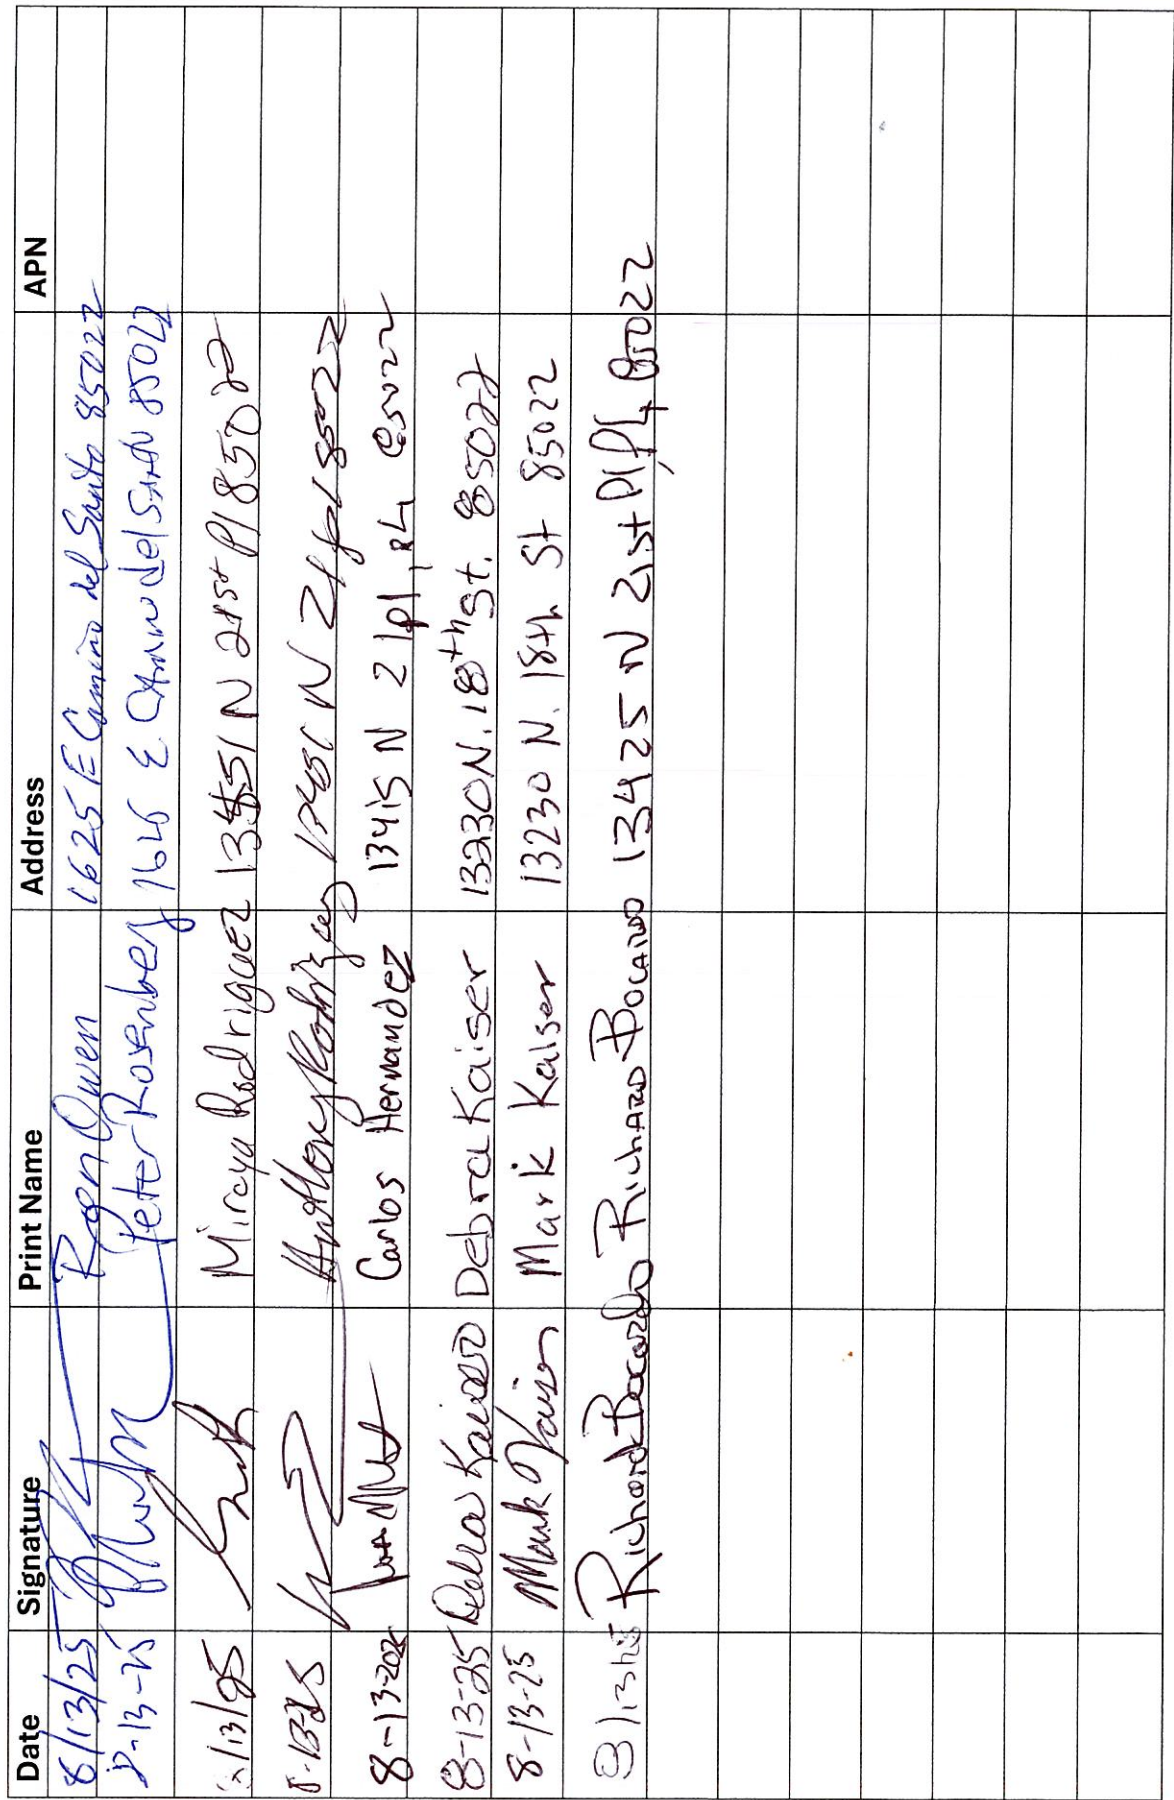 Date Signature Print Name Address APN
8/13/25 Roger Owen 1625 E Camino del Santo 85022
8-13-25 Peter Rosenberg 1616 E Camino del Santo 85022
8/13/25 Miraya Rodriguez 13451 N 21st Pl 85022
8-13-25 Anthony Rodriguez 13451 N 21 pl 85022
8-13-202 Carlos Hernandez 13415 N 21 pl, p4 85022
8-13-25 Debra Kaiser Debra Kaiser 13230 N. 18th St. 85022
8-13-25 Mark Kaiser Mark Kaiser 13230 N. 18th St 85022
8/13/25 Richard Bocardo RICHARD BOCARDO 13425 N 21st Pl 85022